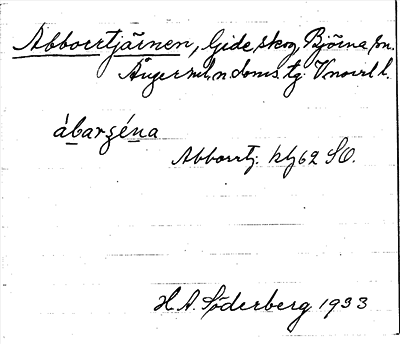 Abborrtjärnen, Gideå skog, Björna sn.
Ångermln doms tg. V norrl l.
ábarʒéna
Abborrtj. ktj 62 SO.
H. A. Söderberg 1933